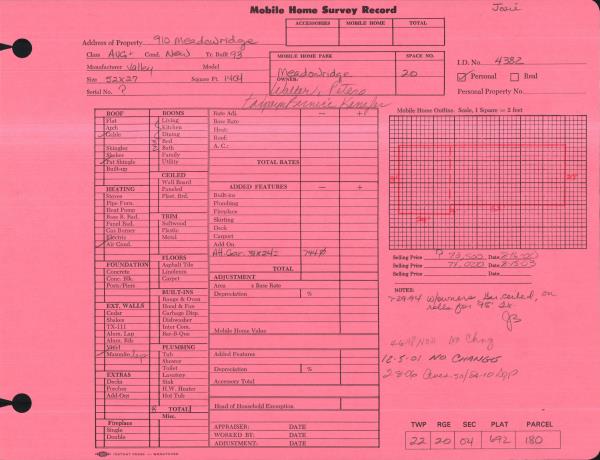 Josie
Mobile Home Survey Record
ACCESSORIES MOBILE HOME TOTAL
Address of Property 910 Meadowridge
Class AVG+ Cond. New Yr. Built 93
Manufacturer Valley Model
Size 52x27 Square Ft. 1404
Serial No. ?
MOBILE HOME PARK SPACE NO.
Meadowridge 20
OWNER:
Walter, Peters
I.D. No. 4382
Personal Real
Personal Property No.
ROOF
Flat
Arch
Gable
Shingles
Shakes
Fat Shingle
Built-up
HEATING
Stoves
Pipe Furn.
Heat Pump
Base B. Rad.
Panel Rad.
Gas Burner
Electric
Air Cond.
FOUNDATION
Concrete
Conc. Blk.
Posts/Piers
EXT. WALLS
Cedar
Shakes
TX-111
Alum. Lap
Alum. Rib
Vinyl
Masonite Lap
EXTRAS
Decks
Porches
Add-On
Fireplace
Single
Double
ROOMS
Living
Kitchen
Dining
Bed
Bath
Family
Utility
CEILED
Wall Board
Paneled
Plast. Brd.
TRIM
Softwood
Plastic
Metal
FLOORS
Asphalt Tile
Linoleum
Carpet
BUILT-INS
Range & Oven
Hood & Fan
Garbage Disp.
Dishwasher
Inter Com.
Bar-B-Que
PLUMBING
Tub
Shower
Toilet
Lavatory
Sink
H.W. Heater
Hot Tub
TOTAL
Misc.
Rate Adj. — +
Base Rate
Heat:
Roof:
A. C.:
TOTAL RATES
ADDED FEATURES — +
Built-ins
Plumbing
Fireplace
Skirting
Deck
Carport
Add On
Att Gar.
TOTAL
ADJUSTMENT
Area x Base Rate
Depreciation %
Mobile Home Value
Added Features
Depreciation %
Accessory Total
Head of Household Exemption
APPRAISER: DATE
WORKED BY: DATE
ADJUSTMENT: DATE
Mobile Home Outline. Scale, 1 Square = 2 feet
Selling Price Date
Selling Price Date
Selling Price Date
NOTES:
12-5-01 NO CHANGES
TWP RGE SEC PLAT PARCEL
22 20 04 692 180